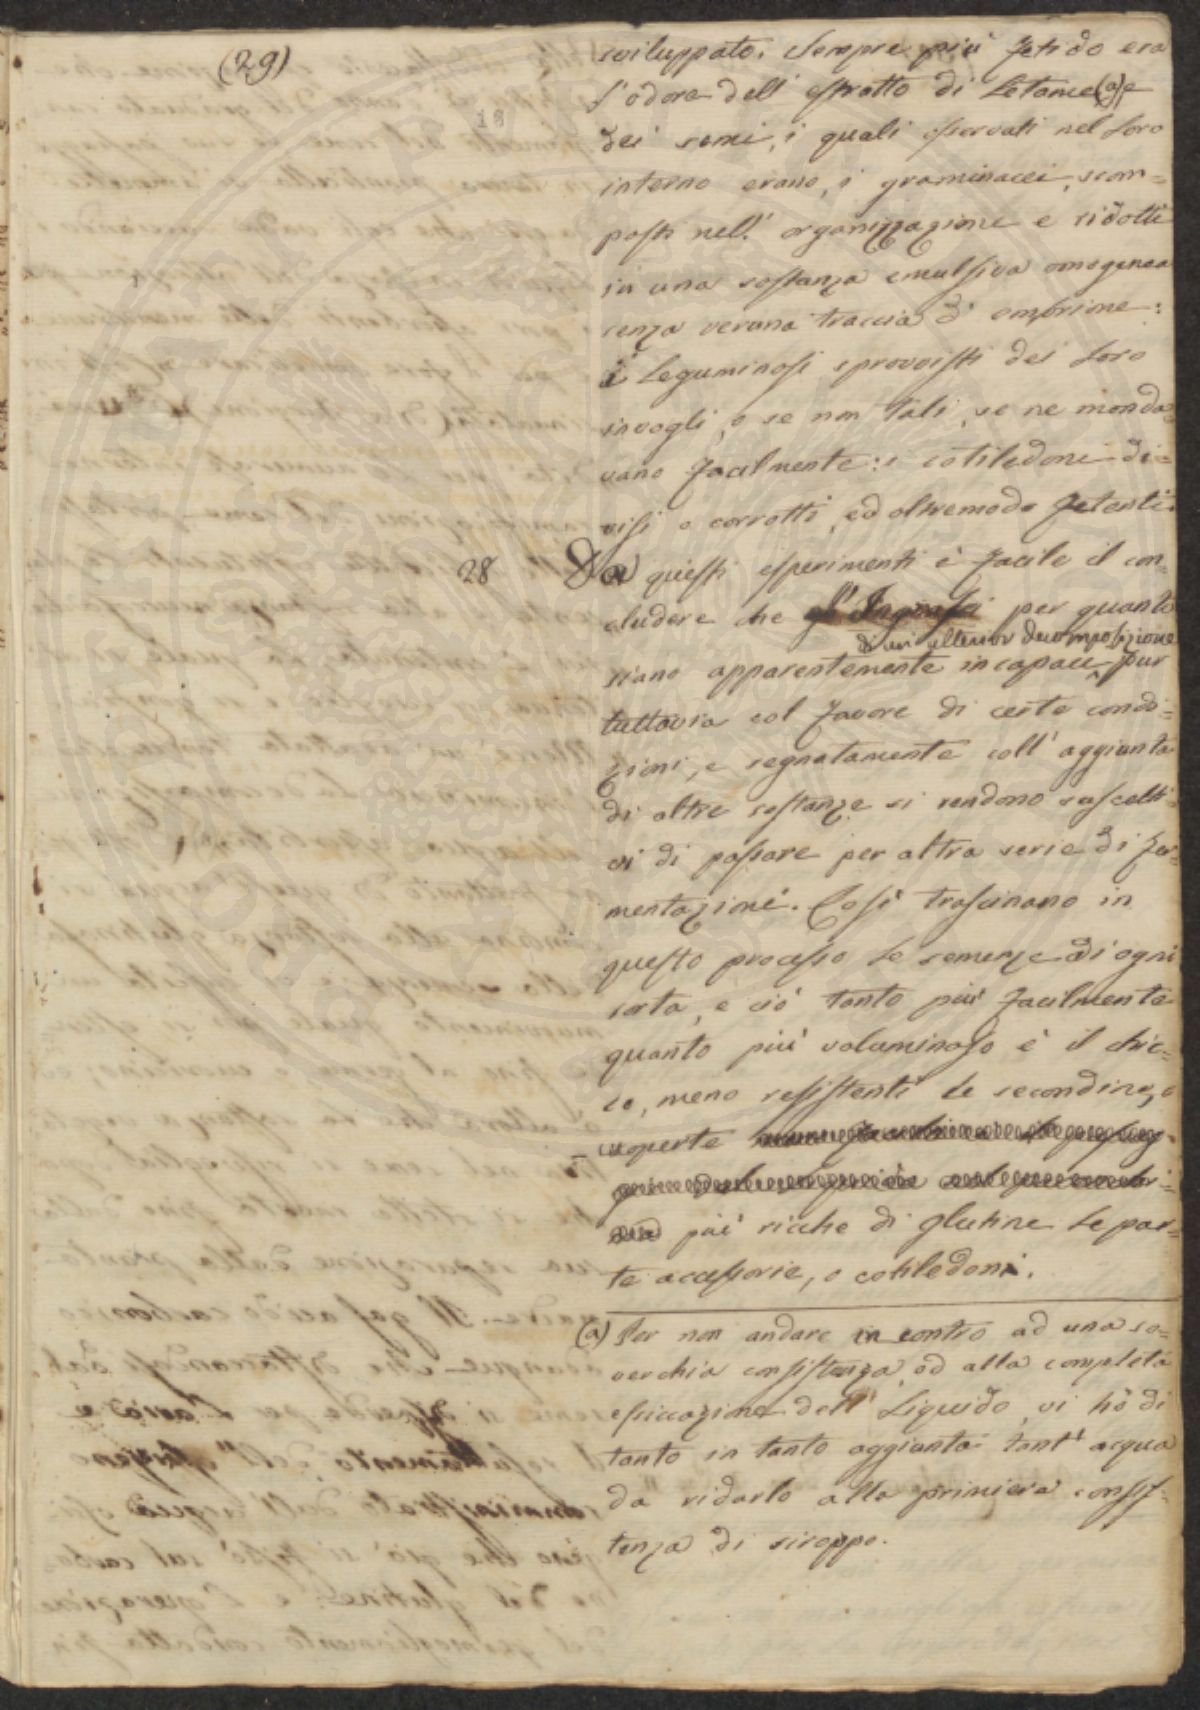 (29)
18
sviluppato. Sempre più fetido era
l'odore dell' estratto di Letame (a) e
dei semi, i quali osservati nel loro
interno erano, i graminacei, scom=
posti nell' organizzazione e ridotti
in una sostanza emulsiva omogenea
senza veruna traccia d' embrione:
i Leguminosi sprovvisti dei loro
invogli, o se non tali, se ne monda=
vano facilmente: i cotiledoni di=
visi o corrotti, ed oltremodo fetenti.
28 Da questi esperimenti è facile il con=
cludere che gl'Ingrassi per quanto
di un ulterior decomposizione
siano apparentemente incapaci, pur
tuttavia col favore di certe condi=
zioni, e segnatamente coll' aggiunta
di altre sostanze si rendono suscetti=
vi di passare per altra serie di fer=
mentazioni. Così trascinano in
questo processo le semenze di ogni
sorta, e ciò tanto più facilmente
quanto più voluminoso è il chic=
co, meno resistenti le secondine, o
coperte
più ricche di glutine le par=
te accessorie, o cotiledoni.
(a) Per non andare in contro ad una so=
verchia consistenza, od alla completa
essiccazione dell' Liquido, vi hò di
tanto in tanto aggiunta tant' acqua
da ridarlo alla primiera consis=
tenza di siroppo.